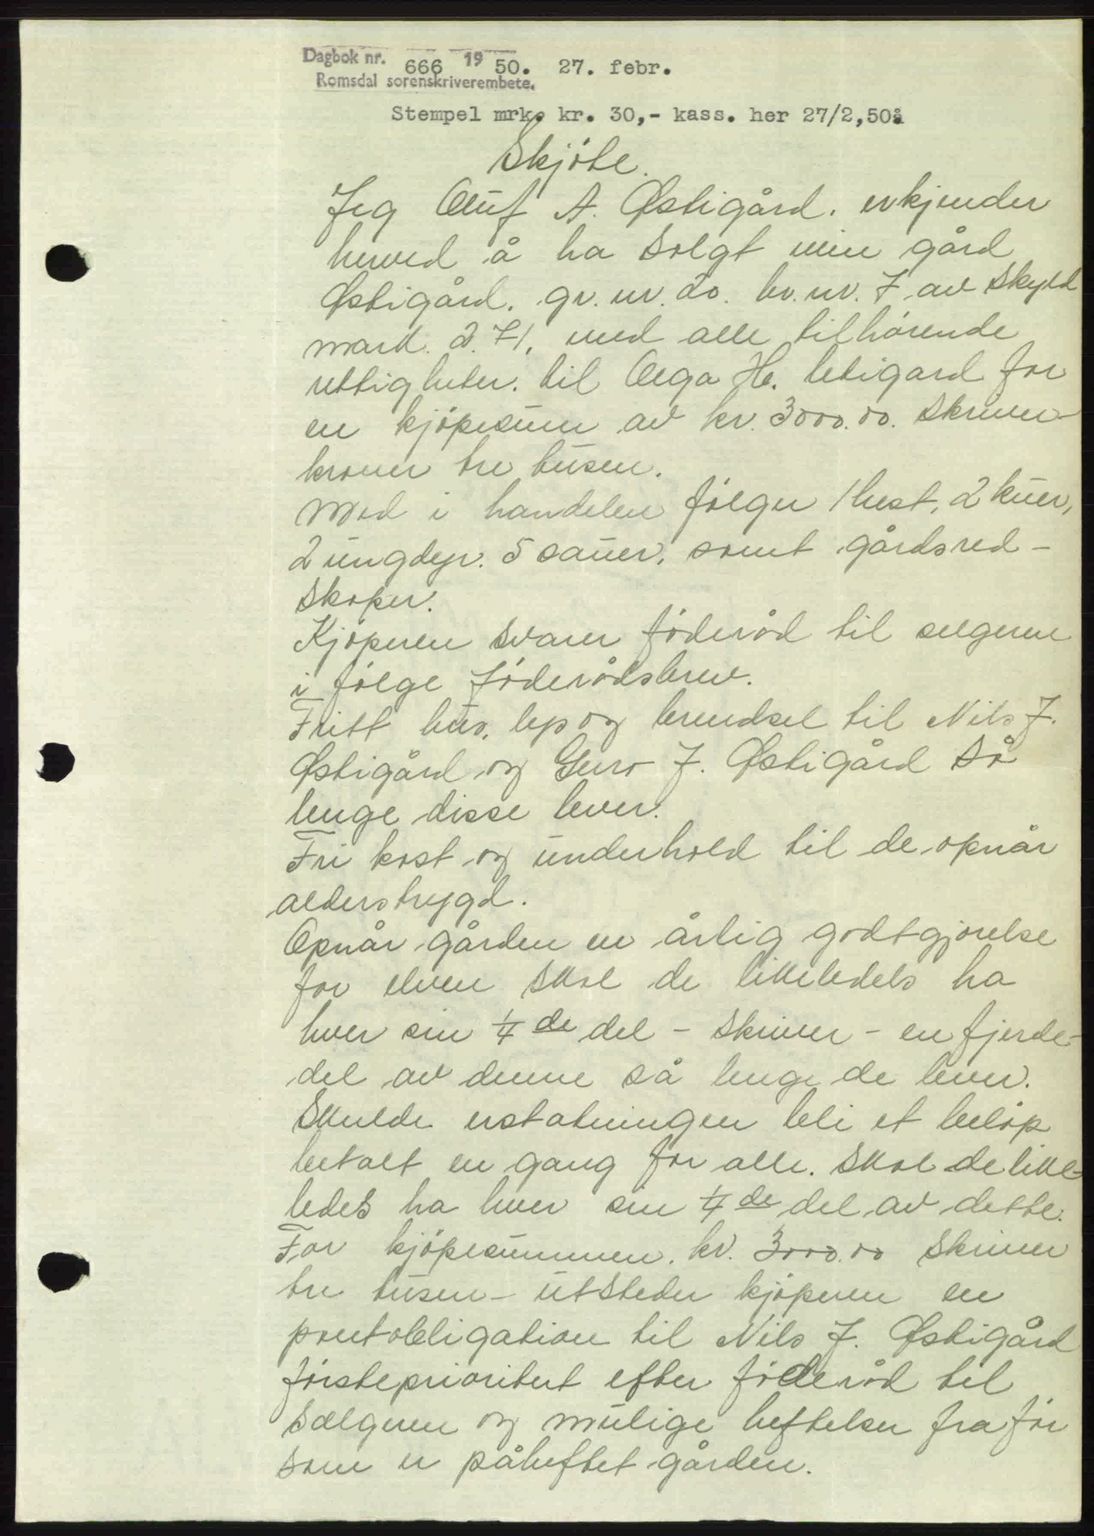 Dagbok nr. 666 1950. 27. febr.
Romsdal sorenskriverembete.
Stempel mrk. kr. 30,- kass. her 27/2,50å
Skjöte.
Jeg Oluf A. Østigård. erkjender
herved å ha solgt min gård
Østigård. gr. nr. 20. br. nr. 7 av skyld
mark. 2.71, med alle tilhörende
rettigheter. til Olga H. for
en kjöpesum av kr. 3000.00. skriver
kroner tre tusen.
Med i handelen fölger 1 hest, 2 kuer,
2 ungdyr. 5 sauer, samt gårdsred-
skaper.
Kjöperen svarer föderåd til selgeren
i fölge föderådsbrev.
Fritt hus, lys og brendsel til Nils J.
Østigård og Guro J. Østigård så
lenge disse lever.
Fri kost og underhold til de opnår
alderstrygd.
Opnår gården en årlig godtgjörelse
for elven skal de likeledels ha
hver sin 1/4 de del - skriver - en fjerde-
del av denne så lenge de lever.
Skulde erstatningen bli et belöp
betalt en gang for alle. Skal de like-
ledes ha hver sin 1/4 de del av dette.
For kjöpesummen. kr. 3000.00 skriver
tre tusen - utsteder kjöperen en
pantobligation til Nils J. Østigård
försteprioritert efter föderåd til
sælgeren og mulige heftelser fra för
som er påheftet gården.